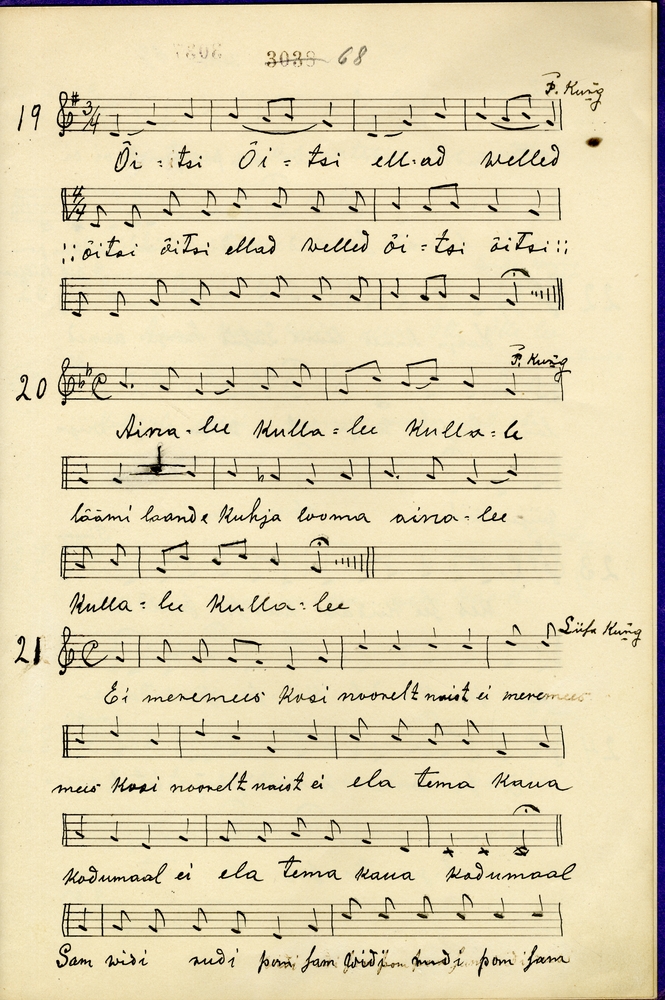 3039 68
P. Kung
19
Õi - tsi Õi - tsi ell-ad welled
:: õitsi õitsi ellad welled õi - tsi õitsi ::
P. Kung
20
Aina - lee Kulla - lee Kulla - le
läämi laande Kuhja looma aina - lee
Kulla - lee Kulla - lee
Liisa Kung
21
Ei meremees Kosi noorelt naist ei meremees
mees Kosi noorelt naist ei ela tema Kaua
Kodumaal ei ela tema Kaua Kodumaal
Sam widi rudi pom sam widi rudi pom sam